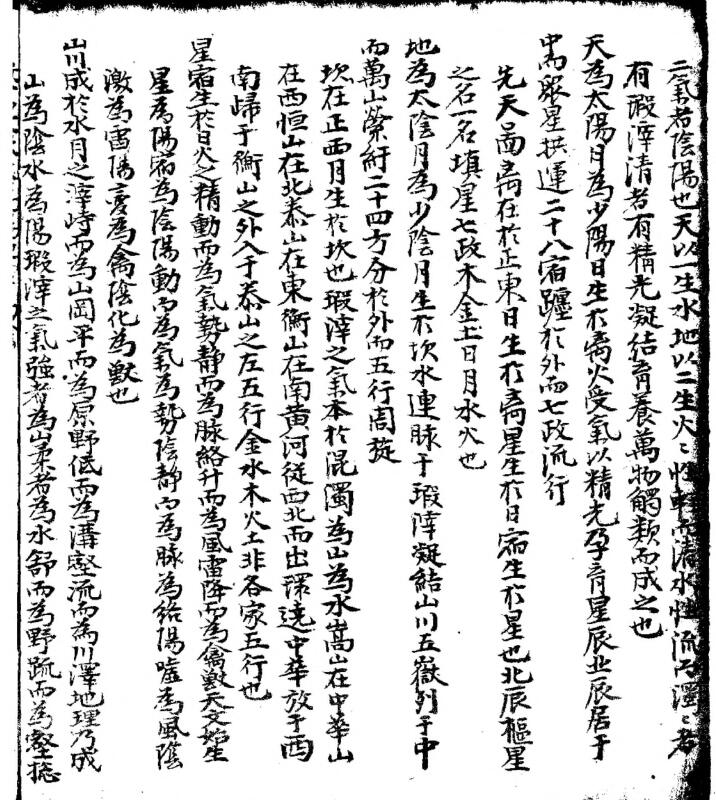 二氣者陰陽也天以一生水地以二生火〻性輕而清水性流而濁〻者
有瑕滓清者有精光凝结育養萬物觸類而成之也
天為太陽日為少陽日生於离火受氣以精光孕育星辰北辰居于
中而眾星拱運二十八宿躔於外而七政流行
先天圖离在於正東日生於离星生於日宿生於星也北辰樞星
之名一名填星七政木金土日月水火也
地為太陰月為少陰月生於坎水連脉于瑕滓凝結山川五嶽列于中
而萬山縈紆二十四方分於外而五行周旋
坎在正西月生於坎也瑕滓之氣本於混濁為山為水嵩山在中華山
在西恒山在北泰山在東衡山在南黄河從西北而出環遶中華放于西
南歸于衡山之外入于泰山之左五行金水木火土非各家五行也
星宿生於日火之精動而為氣勢靜而為脉絡升而為風雷降而為禽獸天文始生
星為陽宿為陰陽動而為氣為勢陰静而為脉為絡陽噓為風陰
激為雷陽變為禽陰化為獸也
山川成於水月之滓峙而為山岡平而為原野低而為溝壑流而為川澤地理乃成
山為陰水為陽瑕滓之氣強者為山柔者為水舒而為野疏而為壑总